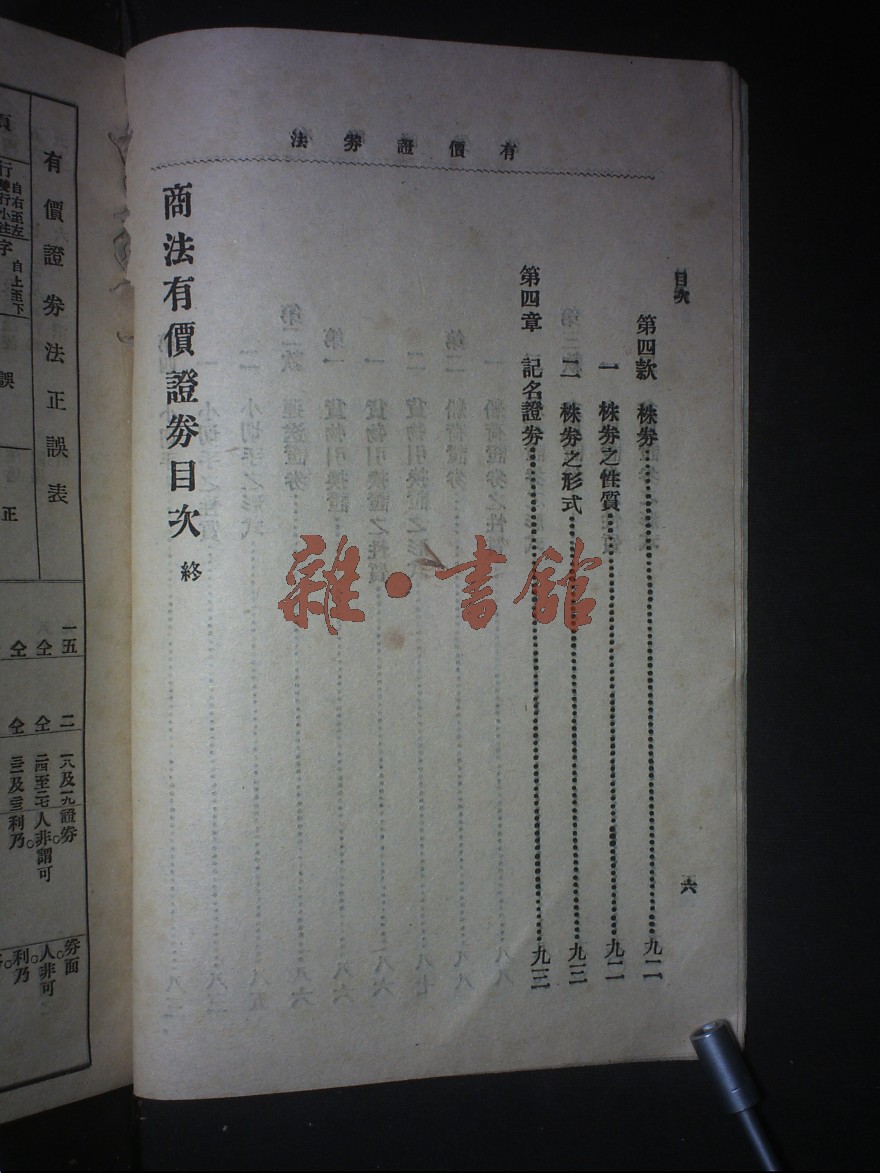 有價證券法
目次
第四款 株券九二
一 株券之性質九二
二 株券之形式九三
第四章 記名證券九三
商法有價證券目次 終
六
雜·書館
有價證券法正誤表
行 自右至左雙行小註
字 自上至下
誤
正
一五
二
一八及一九
證券。
券面。
仝
仝
人非謂可
人非可
仝
仝
利乃。
利乃。